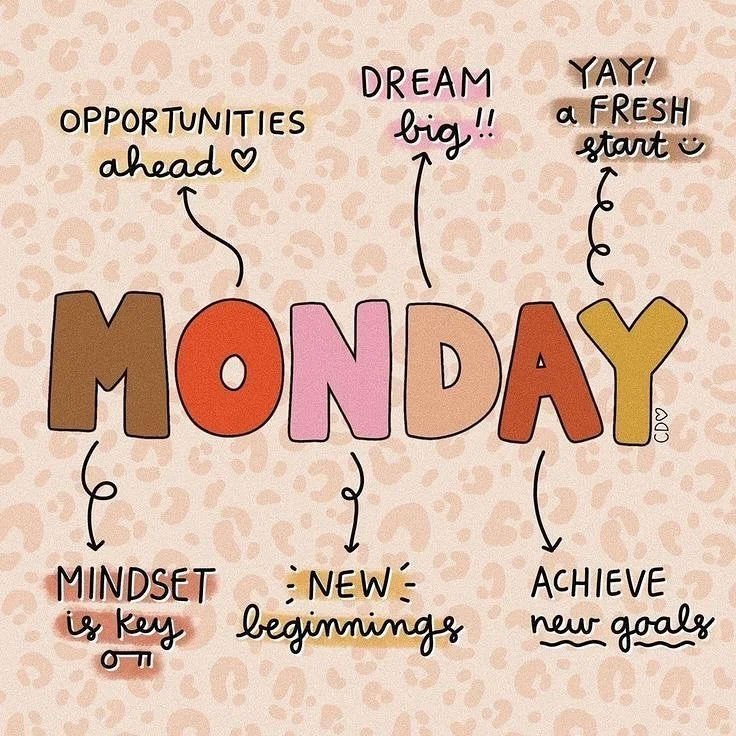 OPPORTUNITIES
ahead ♡
DREAM
big!!
YAY!
a FRESH
start
MONDAY
CD♡
MINDSET
is key
NEW
beginnings
ACHIEVE
new goals